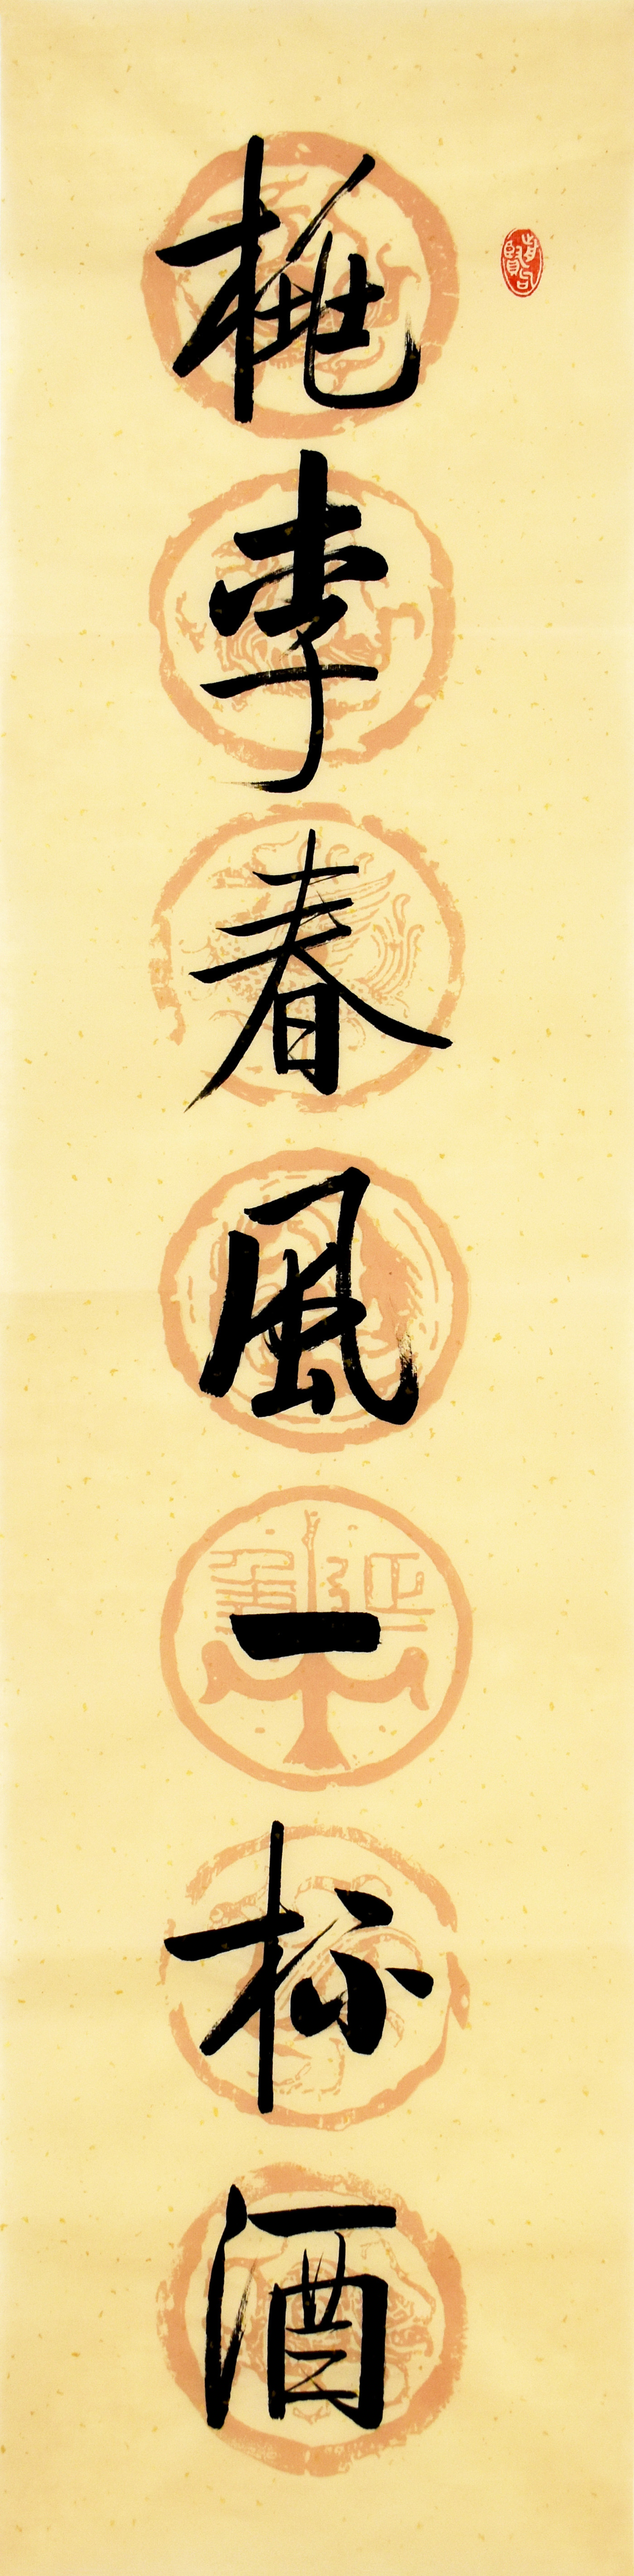 桃李春風一杯酒